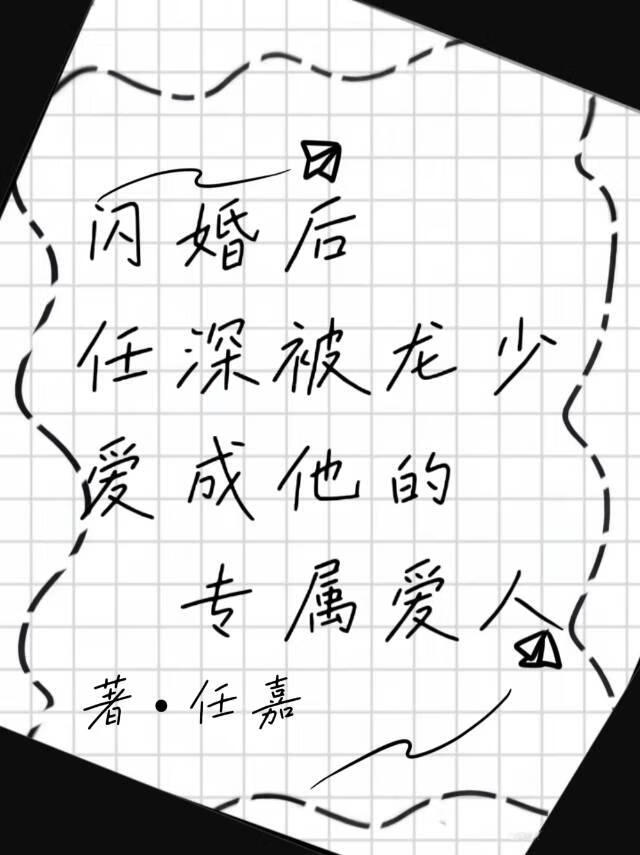 闪婚后
任深被龙少
爱成他的
专属爱人
著·任嘉